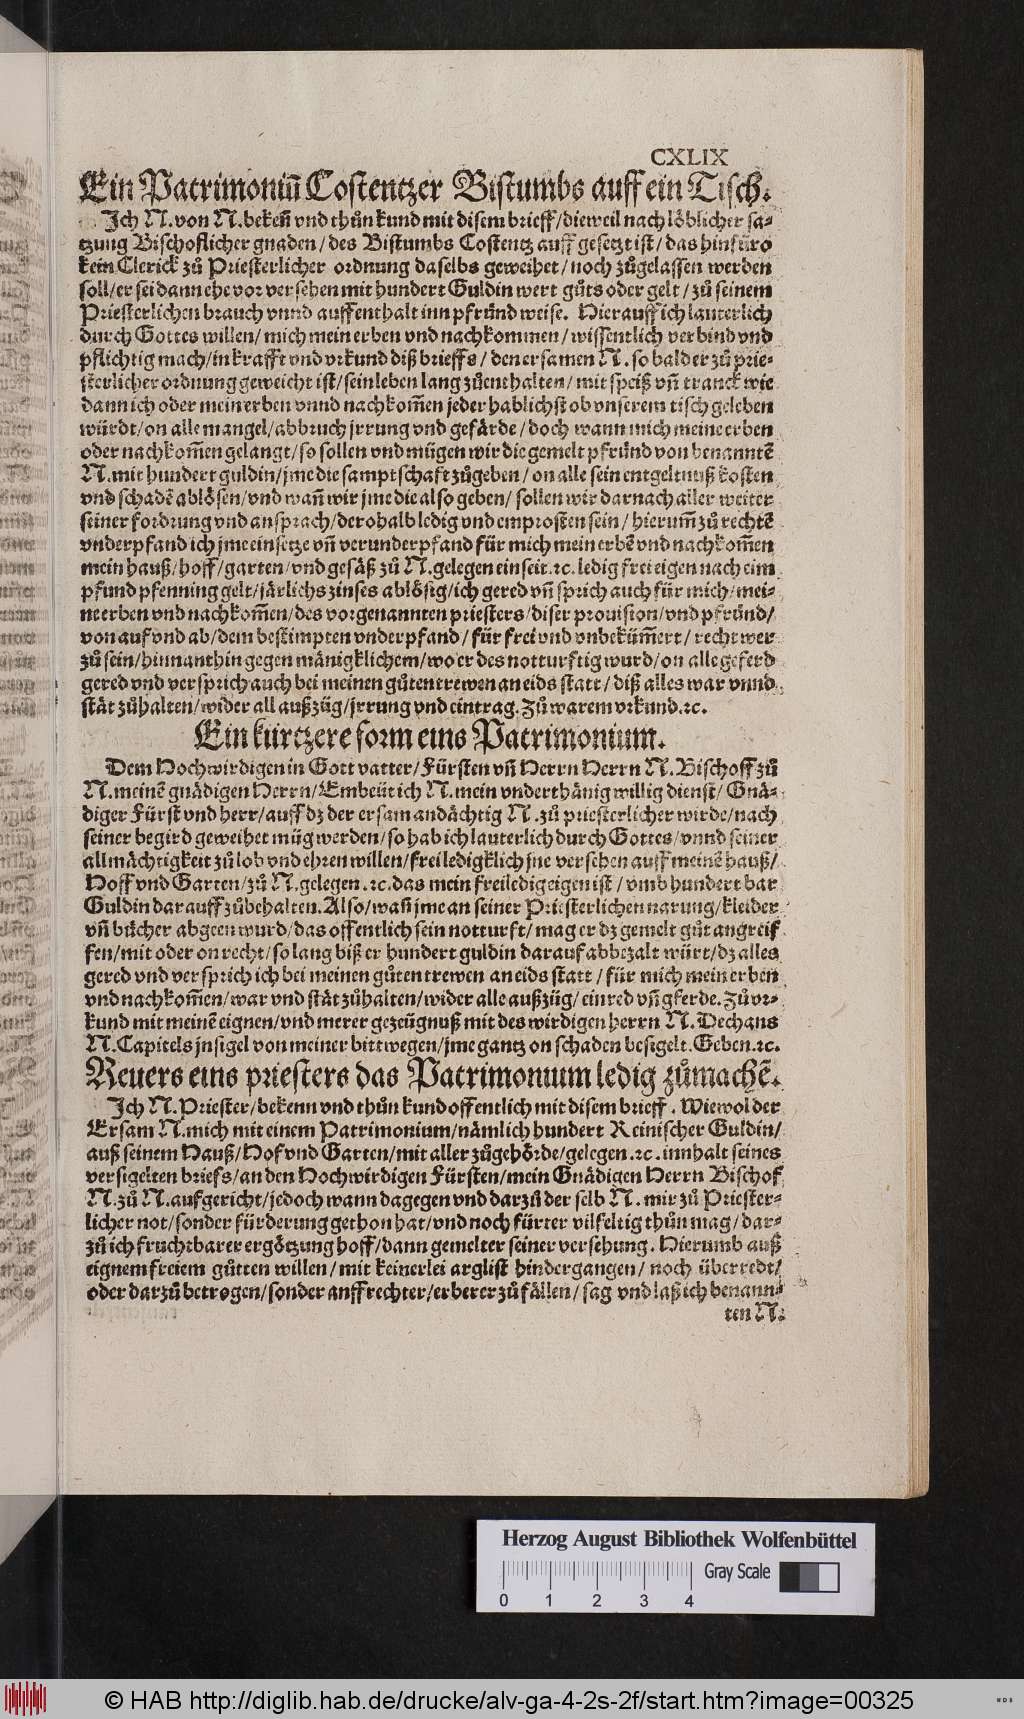 CXLIX
Ein Patrimoniū Costentzer Bistumbs auff ein Tisch.
Ich N. von N. bekeñ vnd thůn kund mit disem brieff/ dieweil nach löblicher sa-
tzung Bischoflicher gnaden/ des Bistumbs Costentz auff gesetzt ist/ das hinfüro
kein Clerick zů Priesterlicher ordnung daselbs geweihet/ noch zůgelassen werden
soll/ er sei dann ehe vor versehen mit hundert Guldin wert gůts oder gelt/ zů seinem
Priesterlichen brauch vnnd auffenthalt inn pfründ weise. Hierauff ich lauterlich
durch Gottes willen/ mich mein erben vnd nachkommen/ wissentlich verbind vnd
pflichtig mach/ in krafft vnd vrkund diß brieffs/ den ersamen N. so bald er zů prie-
sterlicher ordnung geweicht ist/ sein leben lang zůenthalten/ mit speiß vñ tranck wie
dann ich oder mein erben vnnd nachkom̃en jeder hablichst ob vnserem tisch geleben
würdt/ on alle mangel/ abbruch jrrung vnd gefärde/ doch wann mich meine erben
oder nachkom̃en gelangt/ so sollen vnd mügen wir die gemelt pfründ von benanntē
N. mit hundert guldin/ jme die samptschaft zůgeben/ on alle sein entgeltnuß kosten
vnd schadē ablösen/ vnd wañ wir jme die also geben/ sollen wir darnach aller weiter
seiner fordrung vnd ansprach/ der ohalb ledig vnd emprosten sein/ hierum̃ zů rechtē
vnderpfand ich jme einsetze vñ verunderpfand für mich mein erbē vnd nachkom̃en
mein hauß/ hoff/ garten/ vnd gesäß zů N. gelegen einseit. ꝛc. ledig frei eigen nach eim
pfund pfenning gelt/ järlichs zinses ablösig/ ich gered vñ sprich auch für mich/ mei-
ne erben vnd nachkom̃en/ des vorgenannten priesters/ diser prouision/ vnd pfründ/
von auf vnd ab/ dem bestimpten vnderpfand/ für frei vnd vnbeküm̃ert/ recht wer
zů sein/ hinnanthin gegen mänigklichem/ wo er des notturftig wurd/ on alle geferd
gered vnd versprich auch bei meinen gůten trewen an eids statt/ diß alles war vnnd
stät zůhalten/ wider all außzüg/ jrrung vnd eintrag. Zů warem vrkund. ꝛc.
Ein kürtzere form eins Patrimonium.
Dem Hochwirdigen in Gott vatter/ Fürsten vñ Herrn Herrn N. Bischoff zů
N. meinē gnädigen Herrn/ Embeüt ich N. mein vnderthänig willig dienst/ Gnä-
diger Fürst vnd herr/ auff dz der ersam andächtig N. zů priesterlicher wirde/ nach
seiner begird geweihet müg werden/ so hab ich lauterlich durch Gottes/ vnnd seiner
allmächtigkeit zů lob vnd ehren willen/ frei ledigklich jne versehen auff meinē hauß/
Hoff vnd Garten/ zů N. gelegen. ꝛc. das mein frei ledig eigen ist/ vmb hundert bar
Guldin darauff zůbehalten. Also/ wañ jme an seiner Priesterlichen narung/ kleider
vñ bücher abgeen wurd/ das offentlich sein notturft/ mag er dz gemelt gůt angreif
fen/ mit oder on recht/ so lang biß er hundert guldin darauf abbezalt würt/ dz alles
gered vnd versprich ich bei meinen gůten trewen an eids statt/ für mich mein erben
vnd nachkom̃en/ war vnd stät zůhalten/ wider alle außzüg/ einred vñ gferde. Zů vr-
kund mit meinē eignen/ vnd merer gezeügnuß mit des wirdigen herrn N. Dechans
N. Capitels jnsigel von meiner bitt wegen/ jme gantz on schaden besigelt. Geben. ꝛc.
Reuers eins priesters das Patrimonium ledig zůmachē.
Ich N. Priester/ bekenn vnd thůn kund offentlich mit disem brieff. Wiewol der
Ersam N. mich mit einem Patrimonium/ nämlich hundert Reinischer Guldin/
auß seinem Hauß/ Hof vnd Garten/ mit aller zůgehörde/ gelegen. ꝛc. innhalt seines
versigelten briefs/ an den Hochwirdigen Fürsten/ mein Gnädigen Herrn Bischof
N. zů N. aufgericht/ jedoch wann dagegen vnd darzů der selb N. mir zů Priester-
licher not/ sonder fürderung gethon hat/ vnd noch fürter vilfeltig thůn mag/ dar-
zů ich fruchtbarer ergötzung hoff/ dann gemelter seiner versehung. Hierumb auß
eignem freiem gůtten willen/ mit keinerlei arglist hindergangen/ noch überredt/
oder darzů betrogen/ sonder auff rechter/ erberer zů fällen/ sag vnd laß ich benann-
ten N.
Herzog August Bibliothek Wolfenbüttel
Gray Scale
0 1 2 3 4
© HAB http://diglib.hab.de/drucke/alv-ga-4-2s-2f/start.htm?image=00325
WDB